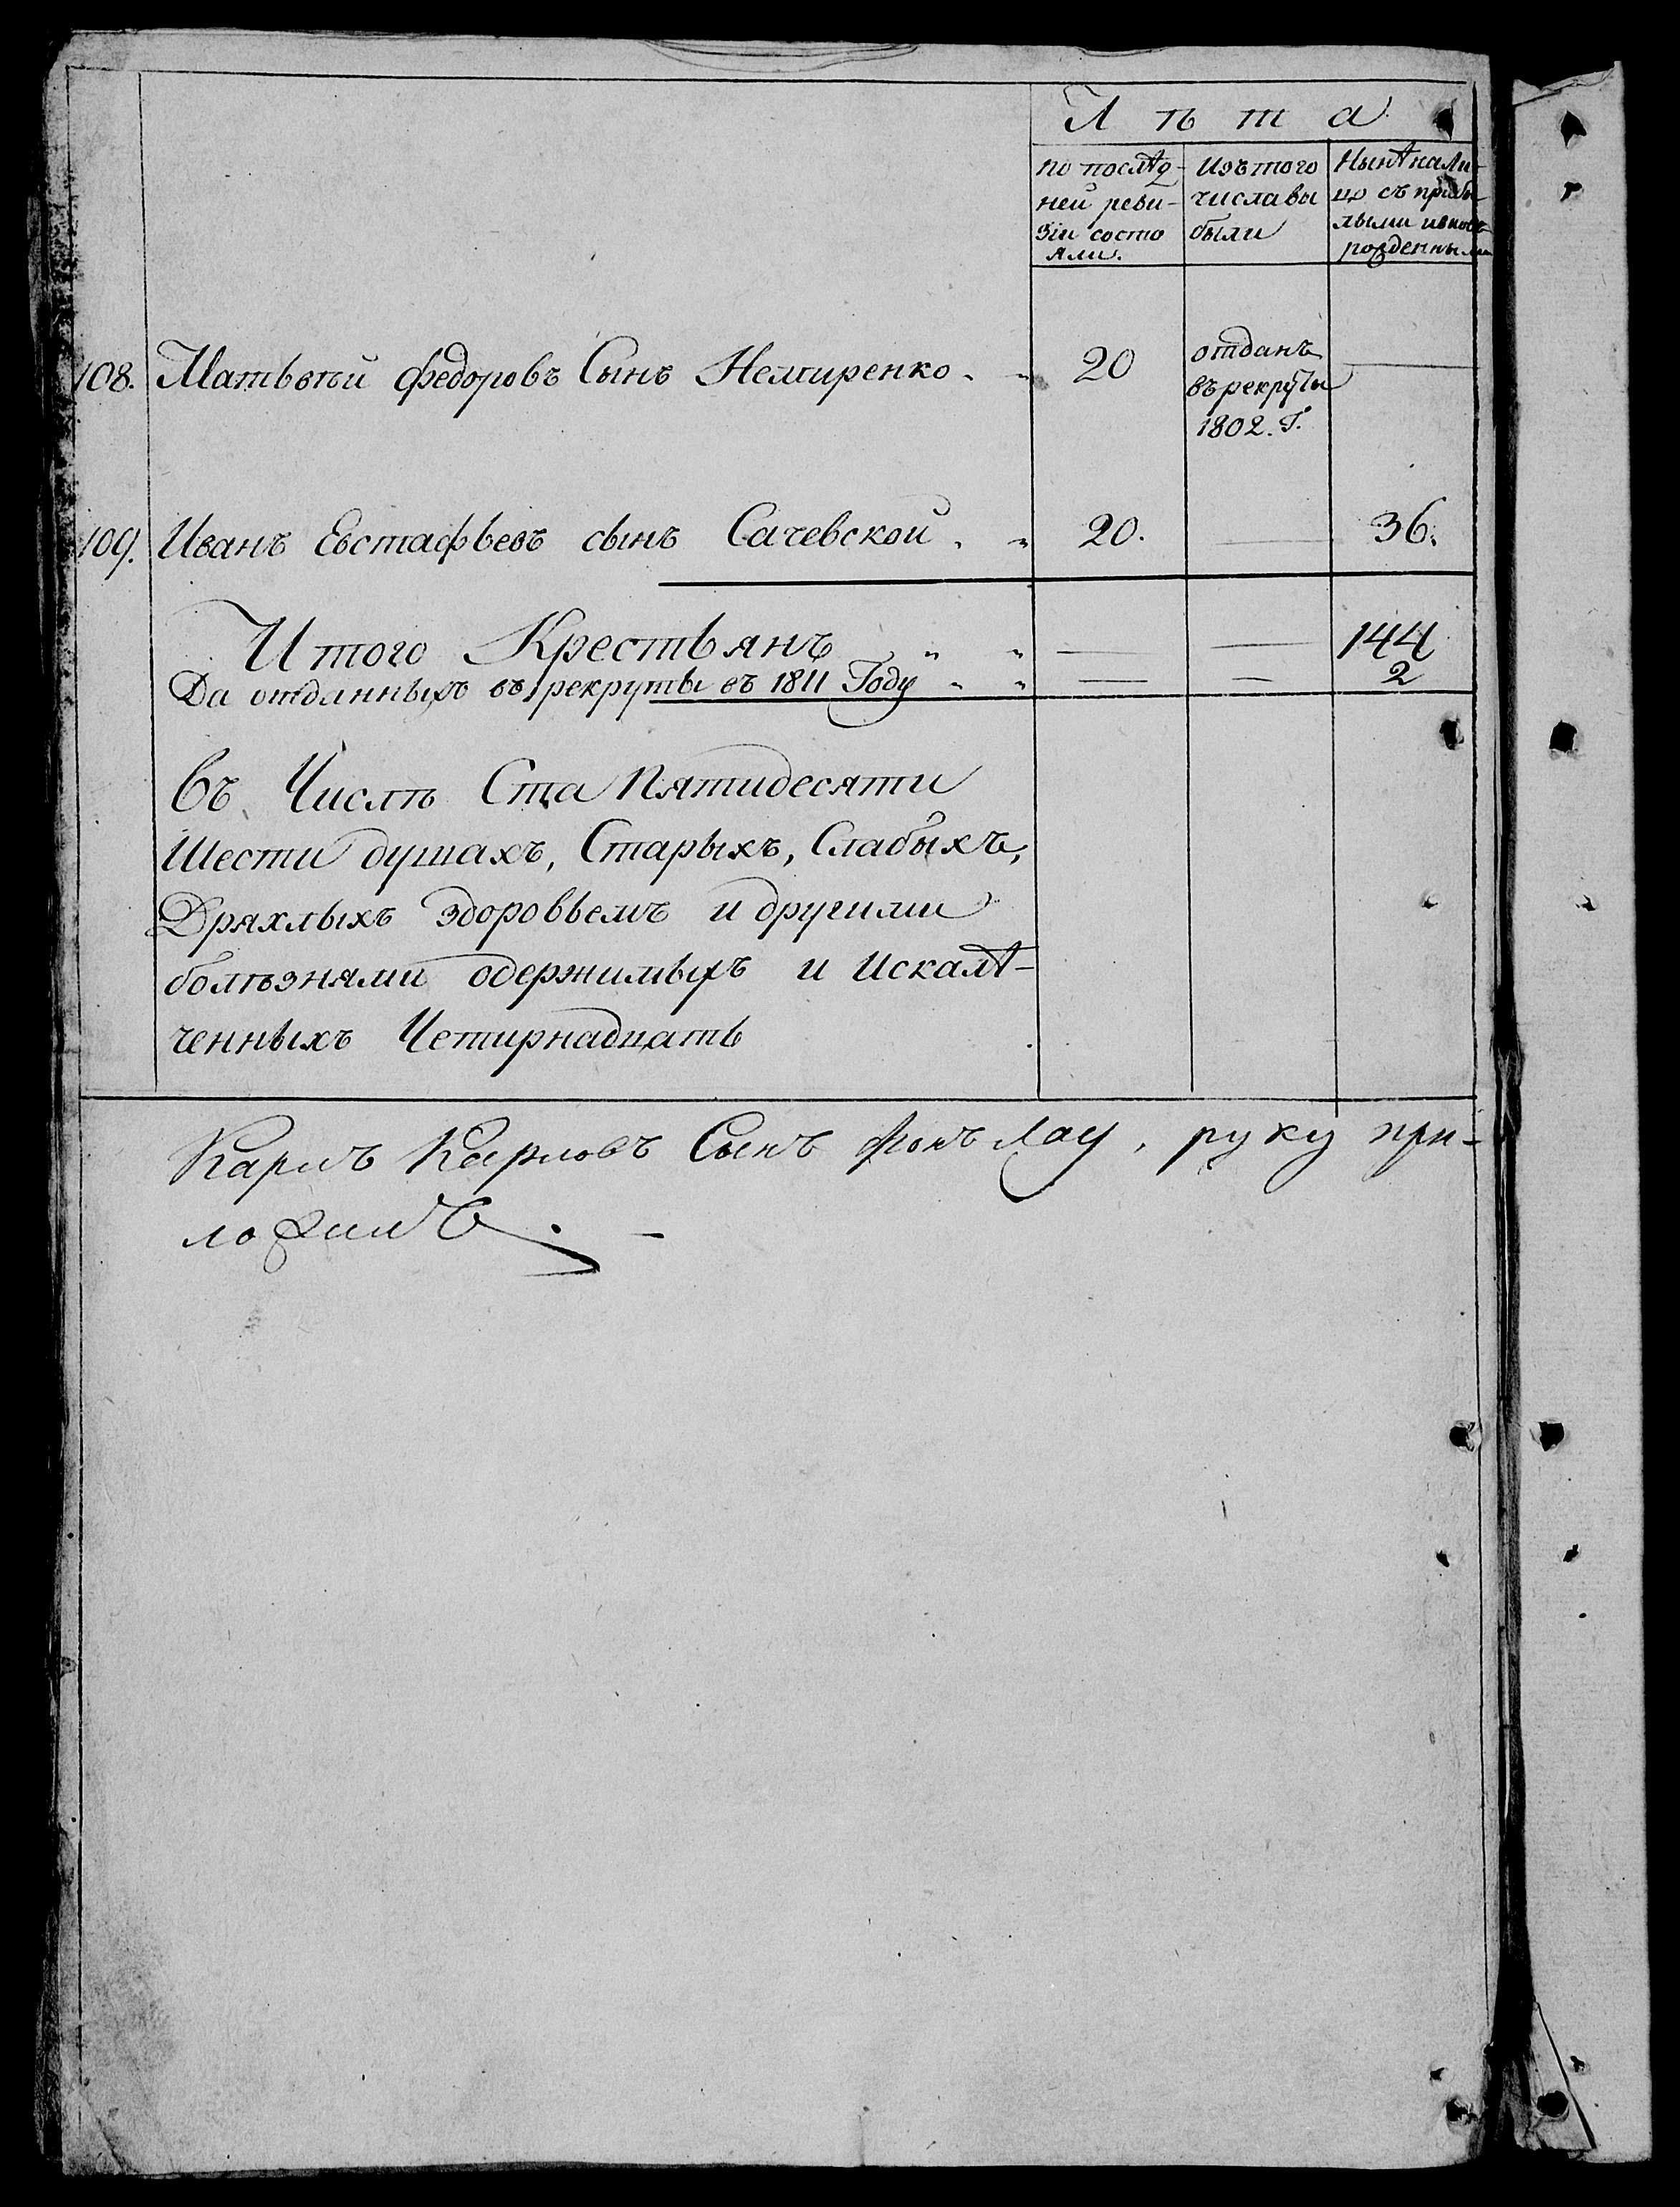 Лѣта
по послѣд-
ней реви-
зіи состо
яли.
Изъ того
числа вы
были
Нынѣ на ли-
цо съ прибы-
лыми и вновь
рожденными
108. Матьвѣй Федоровъ Сынъ Немиренко 20 отданъ
въ рекруты
1802. Г.
109. Иванъ Евстафьевъ сынъ Сачевской 20. — 36.
Итого Крестьянъ „ „ — — 144
Да отданныхъ въ рекруты въ 1811 Году „ „ — — 2
Въ Числѣ Ста Пятидесяти
Шести душахъ, Старыхъ, Слабыхъ,
Дряхлыхъ здоровьемъ и другими
болѣзнями одержимыхъ и Искалѣ-
ченныхъ Четирнадцать
Карлъ Карловъ Сынъ фонъ Лау, руку при-
ложилъ. —